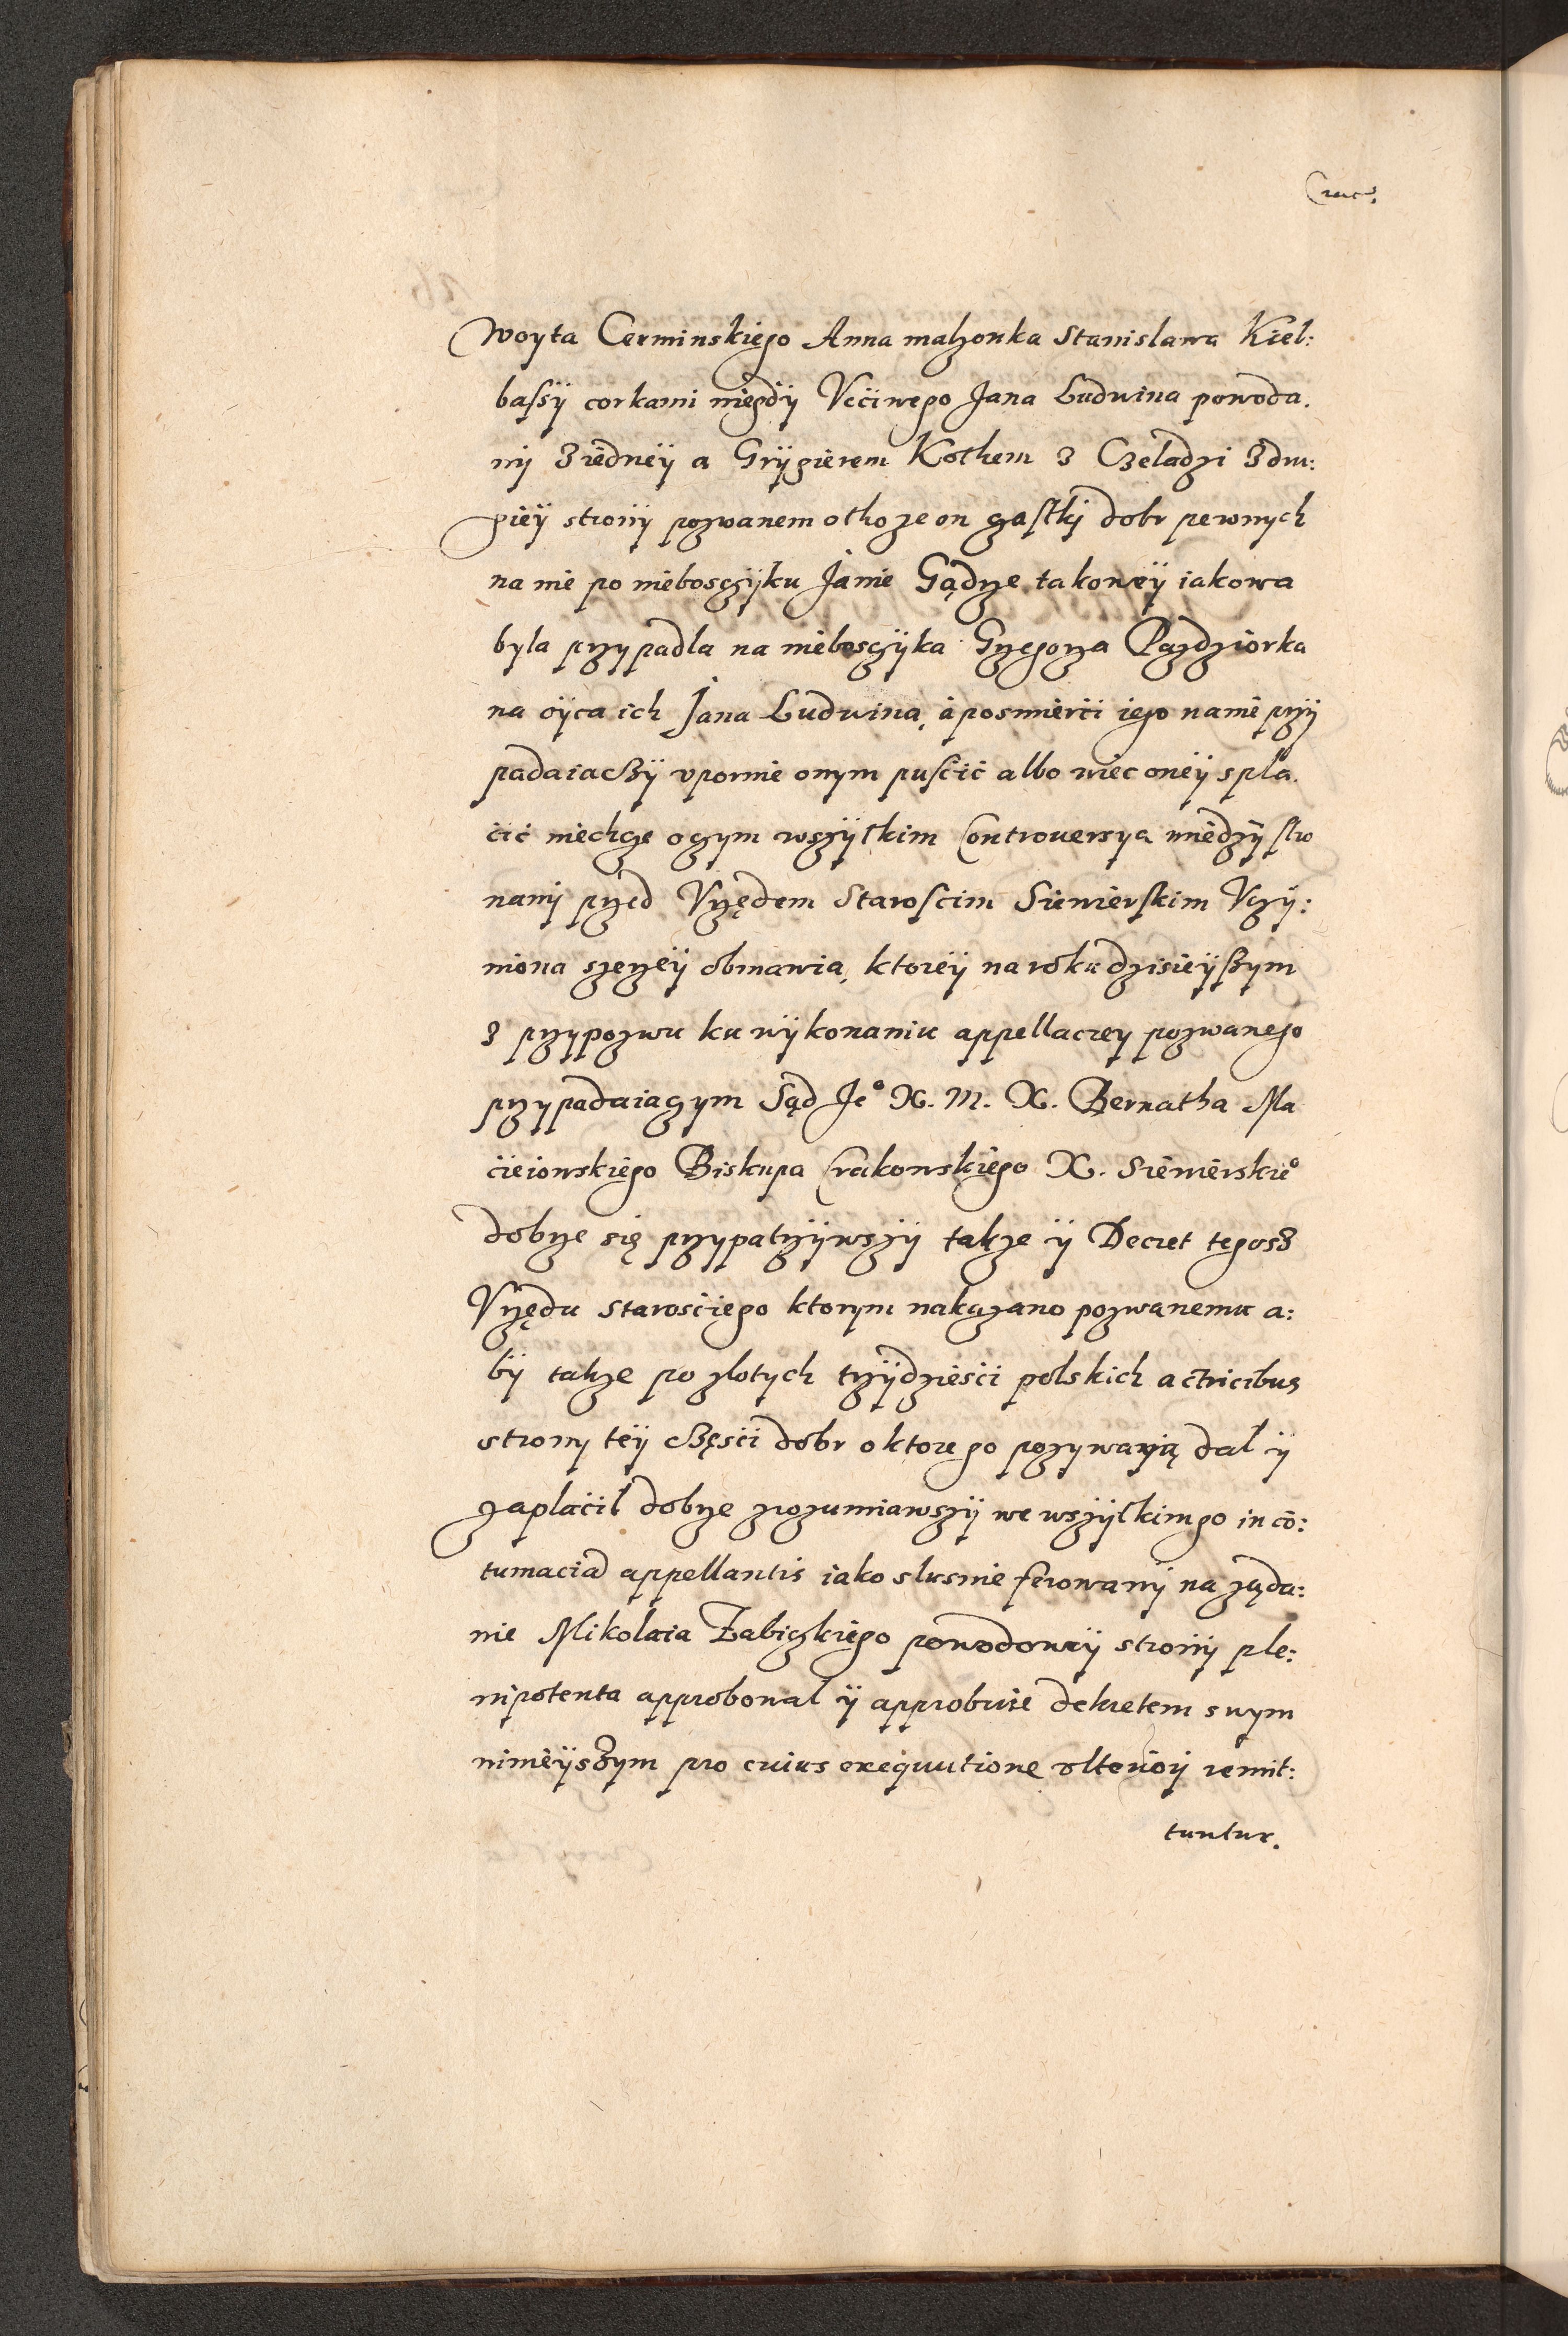 woyta Cerminskiego Anna malzonka Stanislawa Kiel:
bassÿ corkami niegdÿ Vcciwego Jana Ludwina powoda.
mÿ z iedneÿ a Grÿgierem Kothem z Czeladzi z dru:
gieÿ stronÿ pozwanem o tho ze on czastkj dobr pewnych
na nie po nieboszczÿku Janie Gądze takoweÿ iakowa
byla przypadla na nieboszczÿka Grzegorza Pazdziorka
na oÿca ich Jana Ludwina, a po smierci iego na nie przÿ
padaiaczÿ vpornie onym puscic albo wiec oneÿ spla.
cic niechcze o czym wszÿtkim Controuersya miedzÿ stro
namj przed Vrzędem Staroscim Siewierskim Vczÿ:
niona szerzeÿ obmawia, ktoreÿ na roku dzisieÿszym
z przypozwu ku wÿkonaniu appellaczey pozwanego
przypadaiaczym Sąd Jeº X. M. X. Bernatha Ma
cieiowskiego Biskupa Crakowskiego X. Siewierskieº
dobrze się przypatrzÿwszÿ takze ÿ Decret tegosz
Vrzędu starosciego ktorym nakazano pozwanemu a:
bÿ takze po zlotych trzÿdziesci polskich actricibus
strony teÿ częsci dobr o ktore go pozywayią dal ÿ
zaplacil dobrze zrozumiawszÿ we wszÿtkim go in cō:
tumacia appellantis iako slusnie ferowanÿ na ząda:
nie Mikolaia Zabiczkiego powodoweÿ stronÿ ple:
nipotenta approbowal ÿ approbuie dekretem swym
ninieÿszym pro cuius exequutione vlteriorj remit:
tuntur.